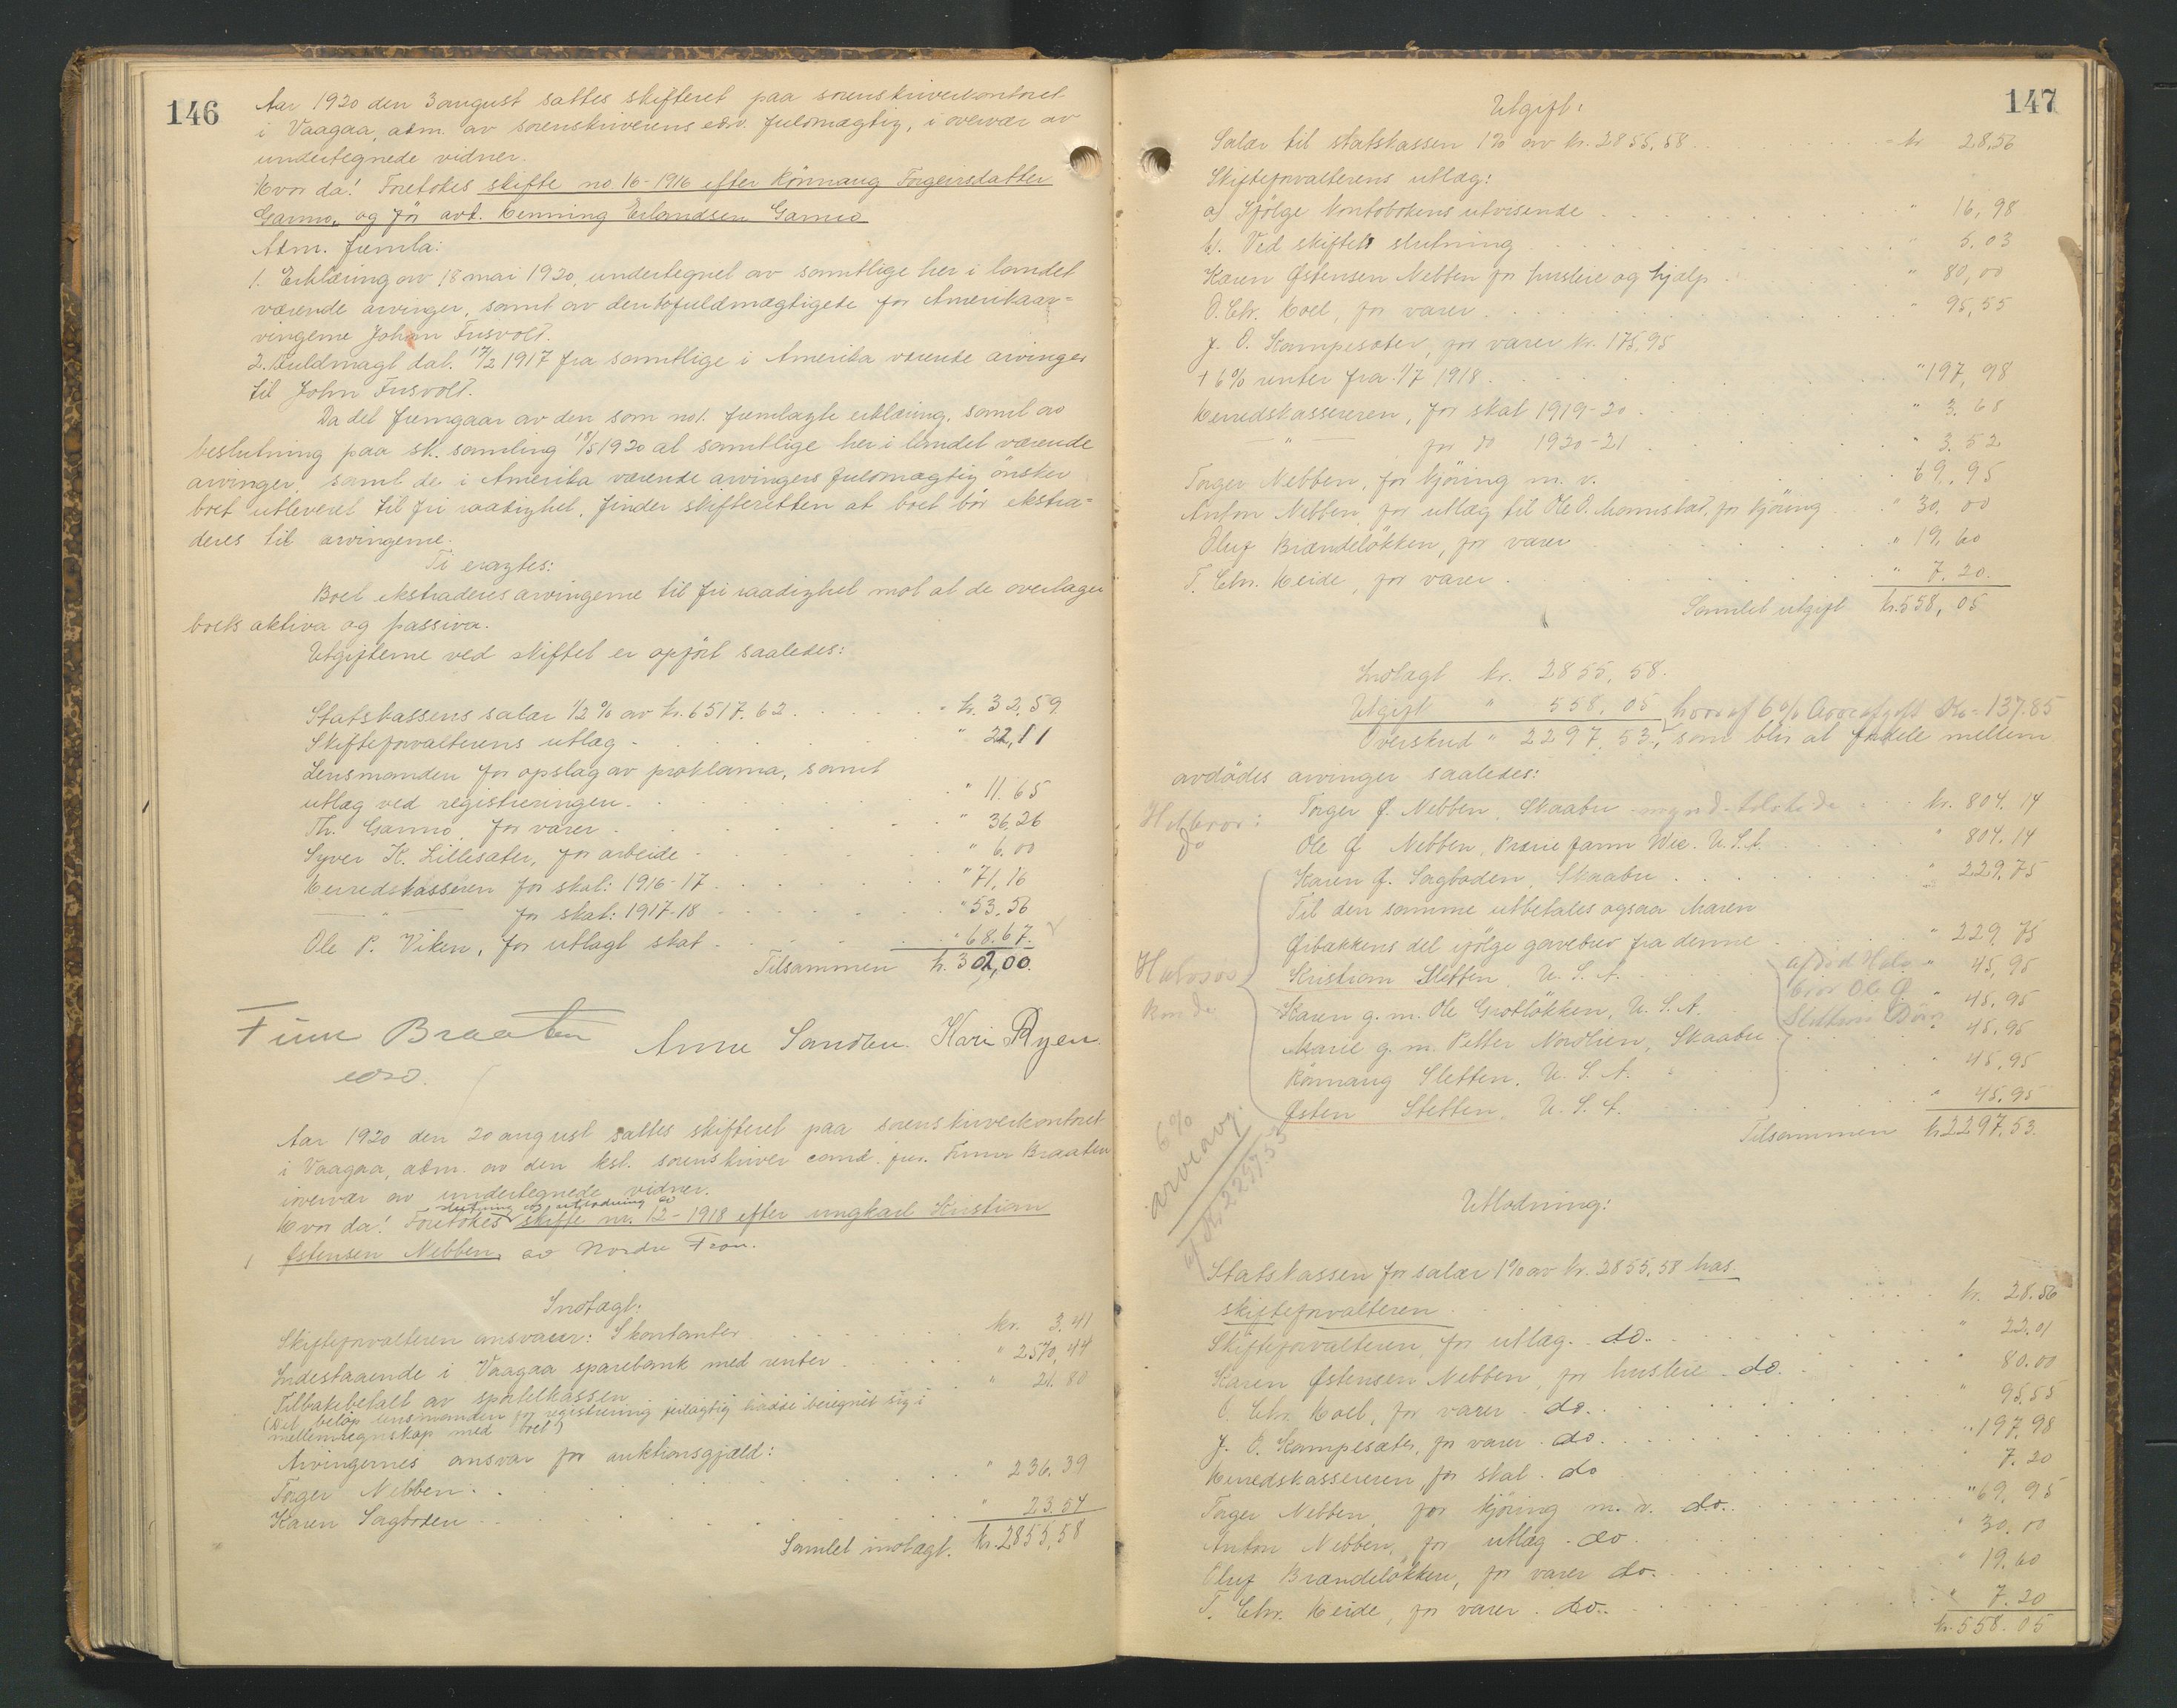 146
Aar 1920 den 3 august sattes skifteret paa sorenskriverkontoret
i Vaagaa, adm. av sorenskriverens edsv. fuldmægtig, i overvær av
undertegnede vidner.
Hvor da! Foretokes skifte no 16-1916 efter Rönnaug Torgersdatter
Garmo, og för avd. Henning Erlandsen Garmo
Adm. fremla:
1. Erklæring av 18 mai 1920, undertegnet av samtlige her i landet
værende arvinger, samt av den befuldmægtigede for Amerikaar=
vingerne Johan Fusvold.
2. Fuldmagt dat. 17/2 1917 fra samtlige i Amerika værende arvinger
til John Fusvold.
Da det fremgaar av den som no 1. fremlagte erklæring, samt av
beslutning paa sk. samling 18/5 1920 at samtlige her i landet værende
arvinger, samt de i Amerika værende arvingers fuldmægtig önsker
boet utleveret til fri raadighet, finder skifteretten at boet bör ekstra=
deres til arvingerne.
Ti eragtes:
Boet ekstraderes arvingerne til fri raadighet mot at de overtager
boets aktiva og passiva.
Utgifterne ved skiftet er opfört saaledes:
Statskassens salær 1/2 % av kr. 6517,62 kr. 32,59
Skifteforvalterens utlæg " 22,11
Lensmanden for opslag av proklama, samt
utlæg ved registreringen " 11.65
Th. Garmo, for varer " 36,26
Syver K. Lillesæter, for arbeide " 6.00
Herredskasseren for skat: 1916-17 " 71,16
— " — for skat: 1917-18 " 53,56
Ole P. Viken, for utlagt skat " 68.67
Tilsammen kr. 302,00.
Finn Braaten Anne Sandbu. Kari Ryen
edsv.
Aar 1920 den 20 august sattes skifteret paa sorenskriverkontoret
i Vaagaa, adm. av den kst. sorenskriver cand. jur. Finn Braaten
i overvær av undertegnede vidner.
slutning og utlodning av
Hvor da! Foretokes skifte nr. 12-1918 efter ungkarl Kristian
Östensen Nebben, av Nordre Fron.
Indtægt:
Skifteforvalteren ansvarer: I kontanter kr. 3,41
Indestaaende i Vaagaa sparebank med renter " 2570,44
Tilbakebetalt av sportelkassen " 21.80
(Det beløp lensmanden for registrering feilagtig hadde beregnet sig i
mellemregnskap med boet)
Arvingernes ansvar for auktionsgjæld:
Torger Nebben " 236.39
Karen Sagboden " 23.54
Samlet indtægt. kr. 2855,58
147
Utgift:
Salær til statskassen 1% av kr. 2855,58 kr 28,56
Skifteforvalterens utlæg:
a) Ifölge kontobokens utvisende " 16,98
b. Ved skiftets slutning " 5.03
Karen Østensen Nebben for husleie og hjælp " 80,00
O. Chr. Hoel, for varer " 95,55
J. O. Kampesæter, for varer kr. 175,95
+ 6% renter fra 1/7 1918 " 197,98
Herredskassereren, for skat 1919-20 " 3.68
— " — for do 1920-21 " 3.52
Torger Nebben, for kjöring m. v. " 69,95
Anton Nebben, for utlæg til Ole O. Monnstad, for kjöring " 30,00
Oluf Brændelökken, for varer " 19,60
T. Chr. Heide, for varer " 7.20
Samlet utgift kr. 558,05
Indtægt kr. 2855,58.
Utgift " 558,05 hvoraf 6% Arveafgift Kr= 137.85
Overskud " 2297,53, som blir at fordele mellem
avdödes arvinger saaledes:
Helbror: Torger Ø. Nebben, Skaabu kr. 804.14
do Ole Ø Nebben, Prarie farm Wie. U.S.A. " 804.14
Karen Ø. Sagboden, Skaabu " 229,75
Til den samme utbetales ogsaa Maren
Øibakkens del ifölge gavebrev fra denne " 229,75
Halvsös
kende
Kristian Sletten, U. S. A. " 45,95
Karen g. m. Ole Grotlökken, U. S. A. " 45,95
Marie g. m. Petter Nordlien, Skaabu " 45,95
Rönnaug Sletten, U. S. A. " 45,95
Østen Sletten, U. S. A. " 45.95
afdöd Halv
bror Ole Ø
Slettens Børn
Tilsammen kr 2297,53.
6%
arveavg.
af Kr 2297.53
Utlodning:
Statskassen for salær 1% av kr. 2855,58 hos
skifteforvalteren kr. 28.56
Skifteforvalteren, for utlæg do. " 22.01
Karen Østensen Nebben, for husleie do. " 80.00
O. Chr. Hoel, for varer do. " 95.55
J. O. Kampesæter, for varer do. " 197,98
Herredskassereren, for skat do " 7.20
Torger Nebben, for kjöring m. v. do. " 69,95
Anton Nebben, for utlæg do " 30,00
Oluf Brændelökken, for varer do. " 19,60
T. Chr. Heide, for varer do. " 7.20
kr. 558.05